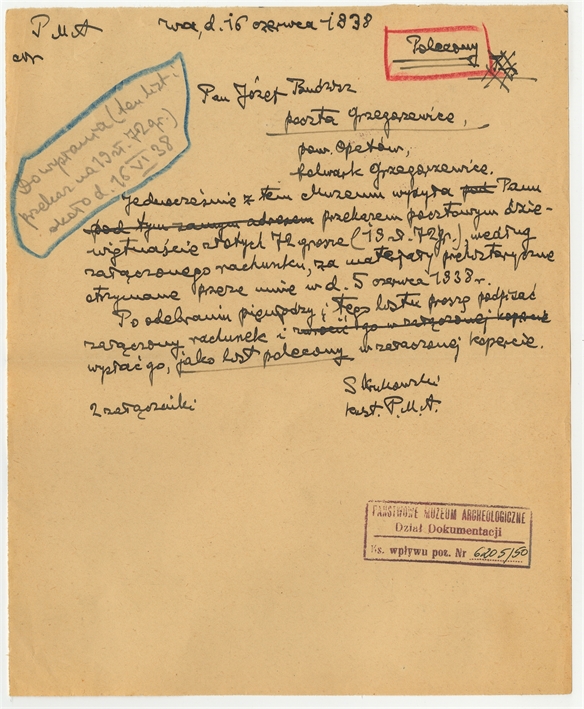 P. M. A.
Wwa, d. 16 czerwca 1938
Polecony
Do wysłania (ten list i
przekaz na 19 zł. 72 gr.)
około d. 16 VI 38
Pan Józef
poczta Grzegorzewice,
pow. Opatów,
folwark Grzegorzewice.
Jednocześnie z tem Muzeum wysyła pod Panu
pod tym samym adresem przekazem pocztowym dzie-
więtnaście złotych 72 grosze (19 zł. 72 gr.), według
załączonego rachunku, za materjały prehistoryczne
otrzymane przeze mnie w d. 5 czerwca 1938 r.
Po odebraniu pieniędzy i tego listu proszę podpisać
załączony rachunek i zwrócić go w załączonej kopercie
wysłać go, jako list polecony w załączonej kopercie.
S Krukowski
kust. P. M. A.
2 załączniki
PAŃSTWOWE MUZEUM ARCHEOLOGICZNE
Dział Dokumentacji
Ks. wpływu poz. Nr 6205/50